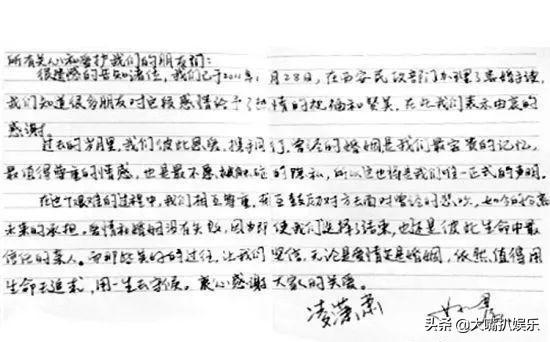 所有关心和爱护我们的朋友们：
很遗憾的告知诸位，我们已于2011年1月28日，在西安民政部门办理了离婚手续，
我们知道很多朋友对这段感情给予了热情的祝福和赞美，在此我们表示由衷的
感谢。
过去的岁月里，我们彼此恩爱，携手同行，曾经的婚姻是我们最宝贵的记忆，
最值得尊重的情感，也是最不愿被触碰的隐私，所以这也将是我们唯一正式的声明。
在这个艰难的过程中，我们相互尊重，互鼓励对方去面对曾经的悲欢，如今的分离
未来的承担。爱情和婚姻没有失败，因为即使我们选择了结束，也还是彼此生命中最
信任的亲人。而那些美好的过往，让我们坚信，无论是爱情还是婚姻，依然值得用
生命去追求，用一生去守候。衷心感谢大家的关爱。
凌潇肃
头条 @大嘴扒娱乐